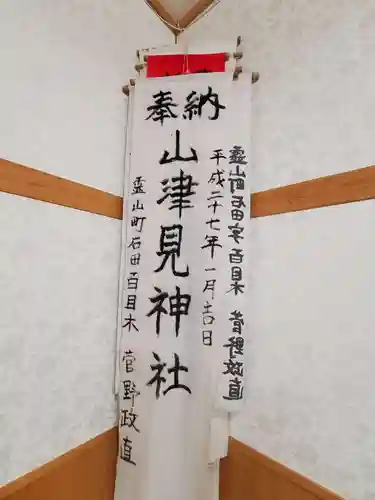 奉納
霊山町石田字百目木 菅野政直
平成二十七年一月吉日
山津見神社
霊山町石田百目木 菅野政直